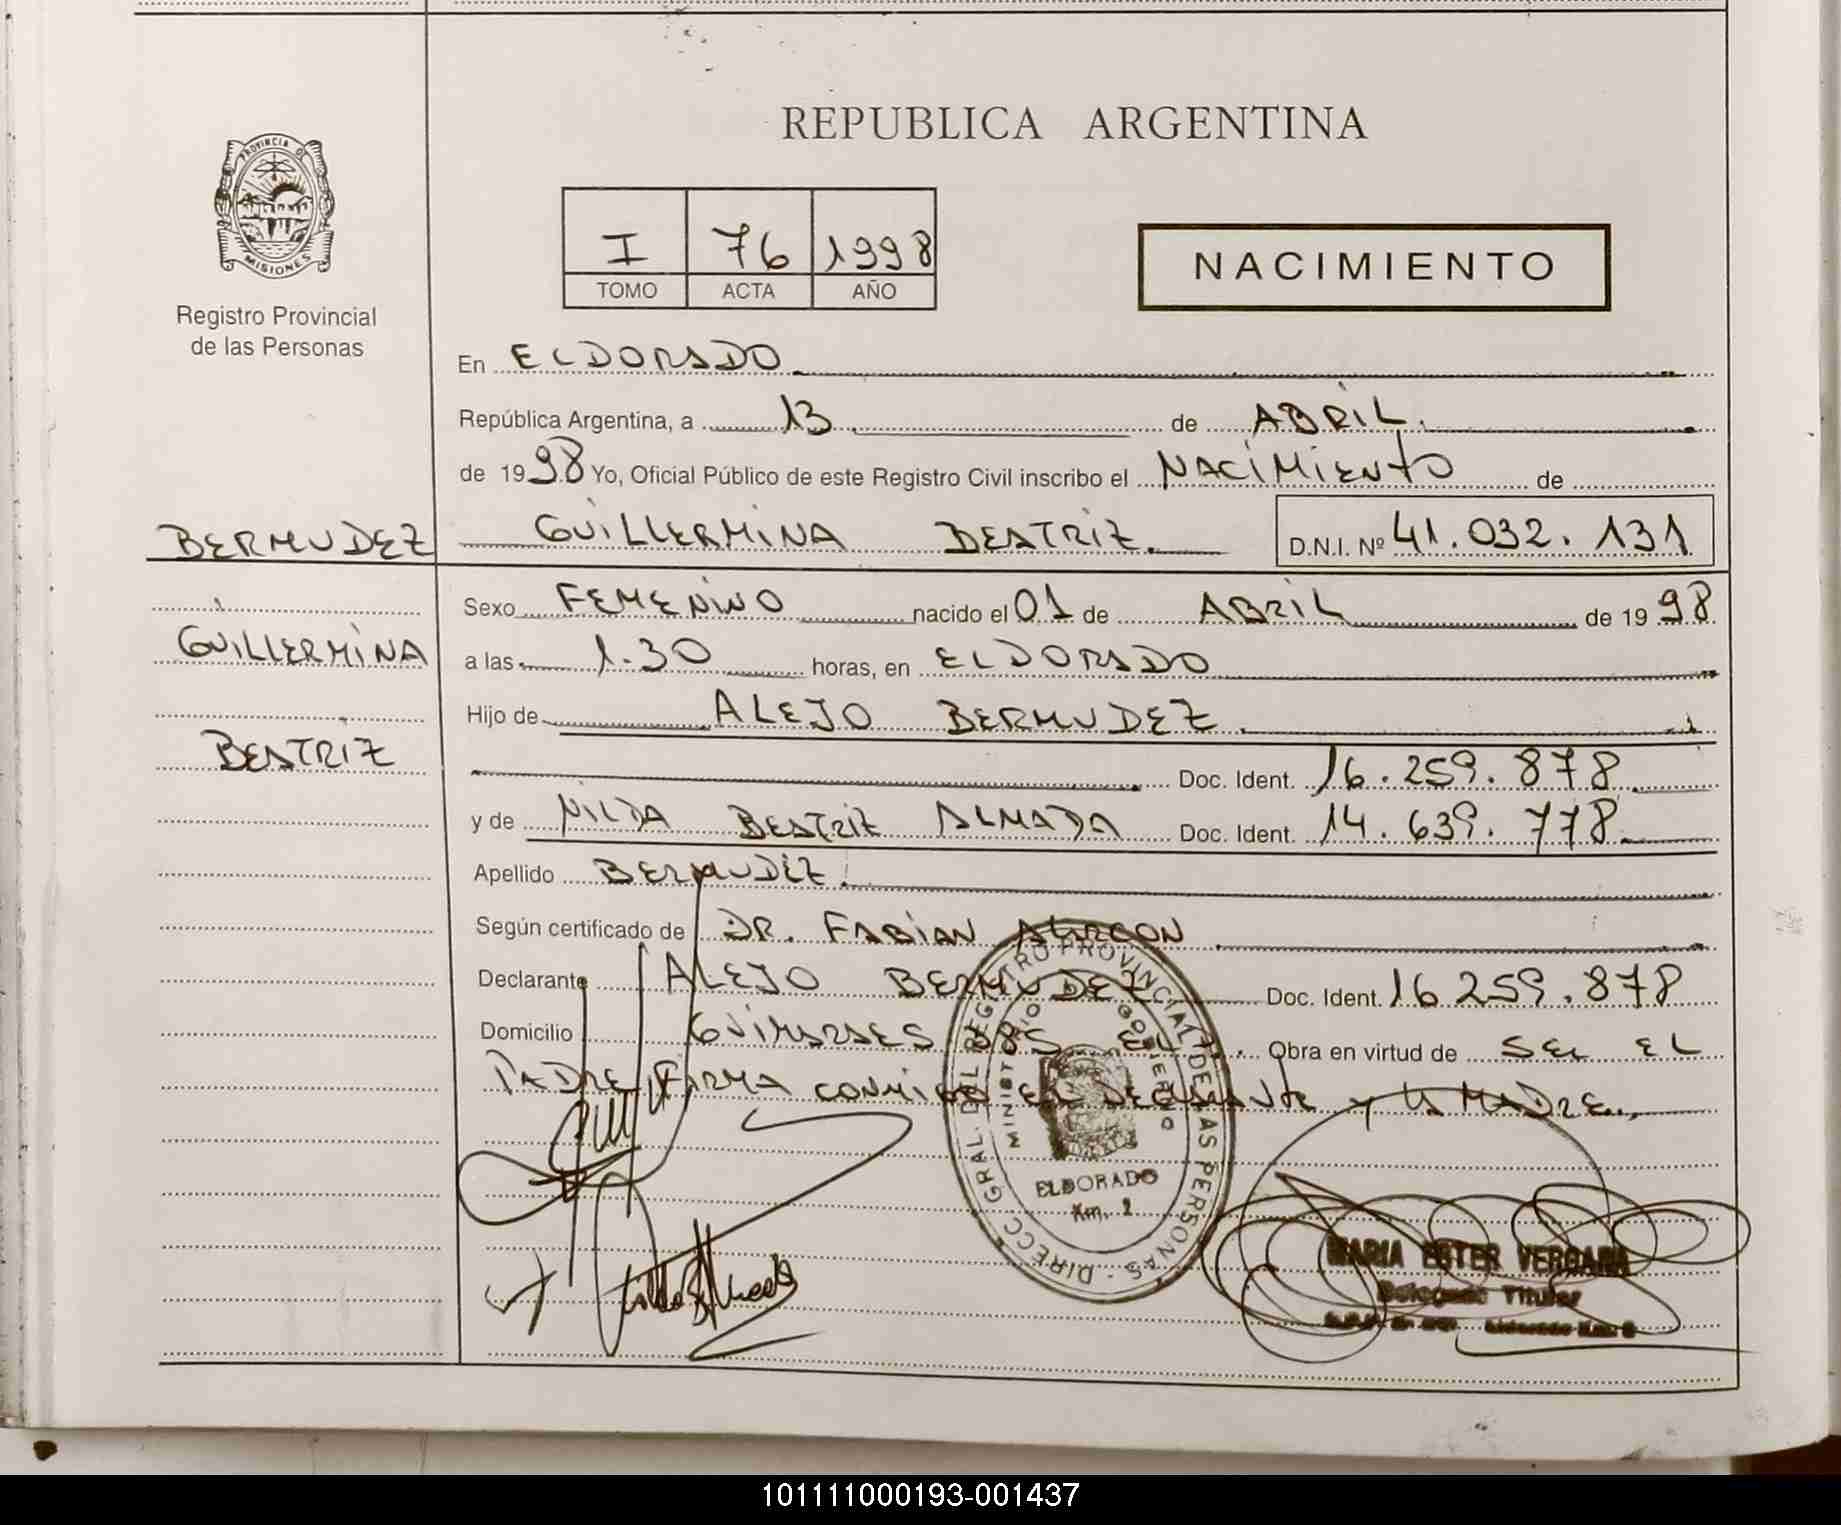 REPUBLICA ARGENTINA
PROVINCIA DE
MISIONES
Registro Provincial
de las Personas
I 76 1998
TOMO ACTA AÑO
NACIMIENTO
En ELDORADO
República Argentina, a 13 de ABRIL.
de 1998 Yo, Oficial Público de este Registro Civil inscribo el NACIMIENTO de
BERMUDEZ
GUILLERMINA BEATRIZ. D.N.I. Nº 41.032.131
Sexo FEMENINO nacido el 01 de ABRIL de 1998
GUILLERMINA
a las 1.30 horas, en ELDORADO
Hijo de ALEJO BERMUDEZ.
BEATRIZ
Doc. Ident. 16.259.878
y de NILDA BEATRIZ ALMADA Doc. Ident. 14.639.778
Apellido BERMUDEZ.
Según certificado de DR. FABIAN ALARCON
Declarante ALEJO BERMUDEZ Doc. Ident. 16259.878
Domicilio GUIMARAES Obra en virtud de SER EL
PADRE FIRMA CONMIGO EL DECLARANTE y LA MADRE.
DIRECC. GRAL. DEL REGISTRO PROVINCIAL DE LAS PERSONAS
MINISTERIO GOBIERNO
ELDORADO
Km. 2
MARIA ESTER VERGARA
Delegado Titular
101111000193-001437